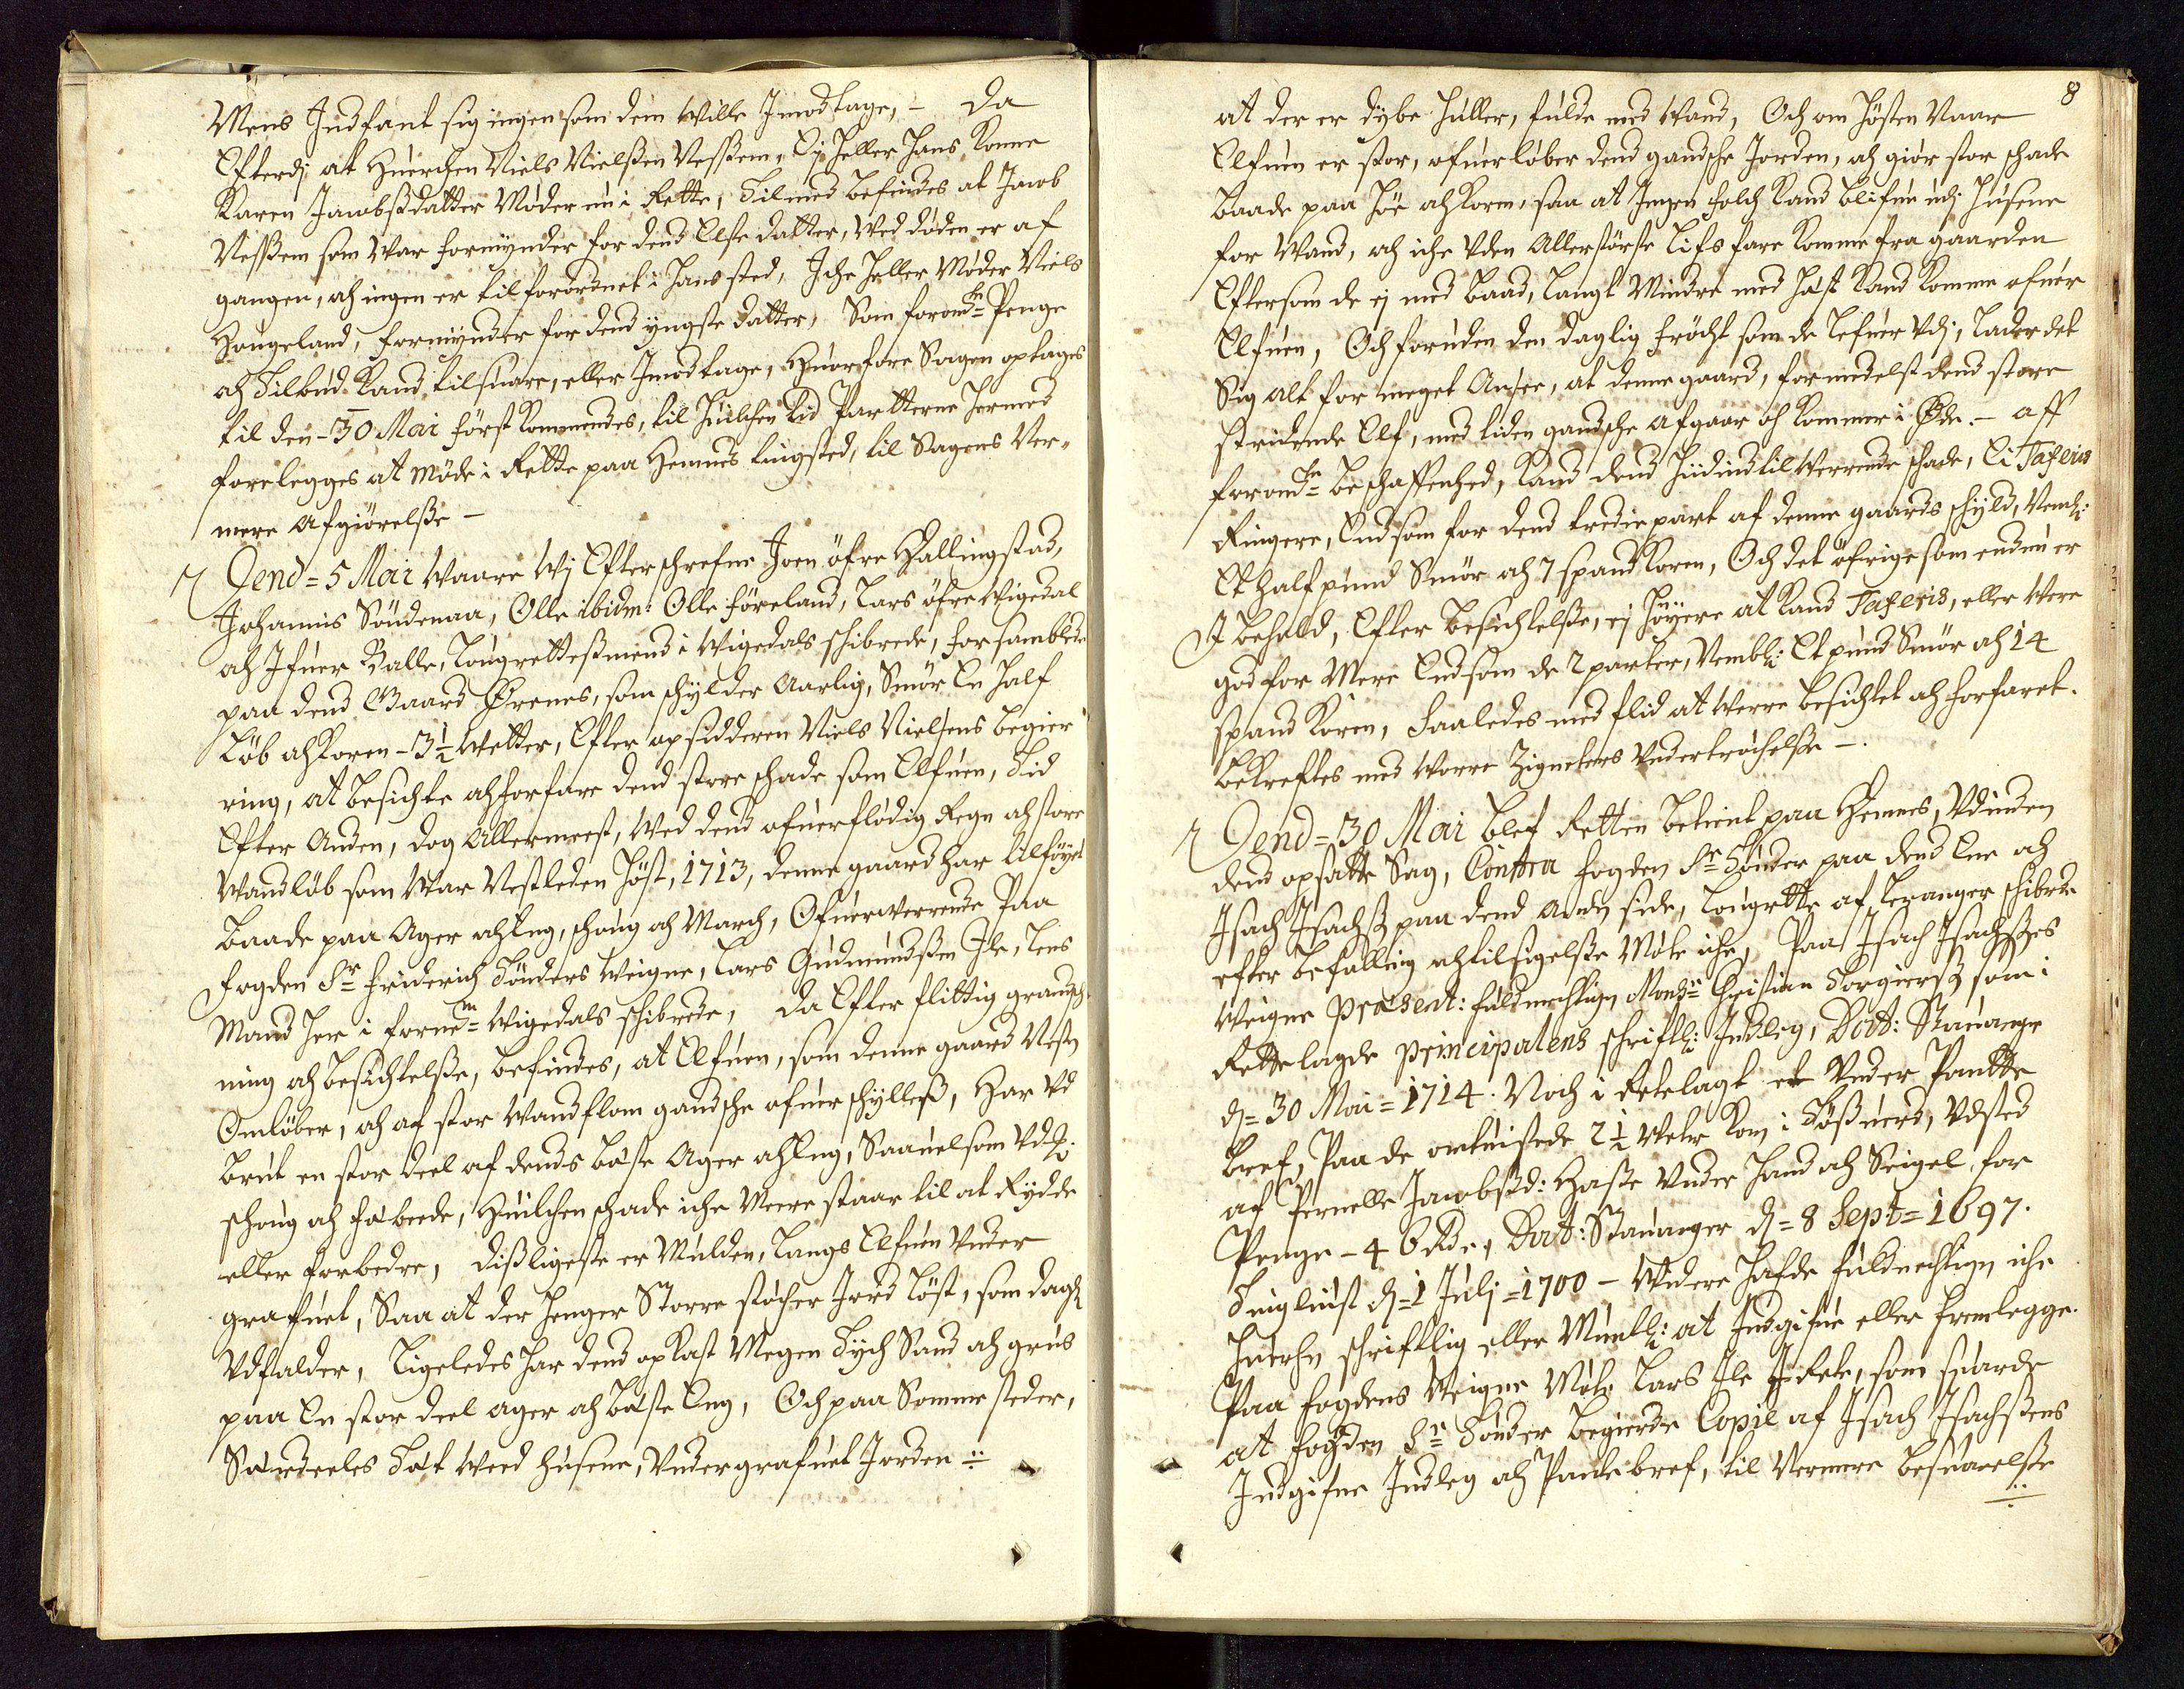 Mens Indfant sig ingen som dem Wille Jmodtage, - Da
Efterdj at Huerchen Niels Nielßen Neßem, Ej heller Hans Konne
Karen Jacobßdatter Møder nu i Rette, Til med befindes at Jacob
Neßem som War formynder for dend Elste datter, Wed døden er af
gangen, och ingen er til forordnet i Hans sted, Iche heller Møder Niels
Hougeland, formynder for dend yngste datter, Som forommelte Penge
och Tilbud Kand tilsvare, eller Imodtage, Huorfore Sagen optages
til den - 30 Mai først kommendes, til Huilchen tid Partterne Hermed
forelegges at Møde i Rette paa Hemnes tingsted, til Sagens Ver-
mere Afgiørelße -
Dend = 5 Mai Waare Wj Efterschrefne Joen øfre Hallingstad,
Johannis Søndenaa, Olle ibidm: Olle Føreland, Lars øfre Wigedal
och Jfuer Balle, Lougretteßmend i Wigedals schibrede, forsamblede
paa dend Gaard Ørenes, som schylder Aarlig, Smør En half
Løb och Korn - 3½ Wetter, Efter opsidderen Niels Nielsens begier
ring, at besichte och forfare dend store schade som Elfuen, Tid
Efter Anden, dog Allermeest, Wed dend ofuerflødig Regn och store
Wandløb som War Nestleden Høst, 1713, denne gaard har tilføyet
baade paa Ager och Eng, schoug och March, Ofuerwerrende Paa
Fogden Sr Friderich Tønders Weigne, Lars Gudmundßen Ile, Lens
Mand her i forne Wigedals schibrede, Da Efter flittig grandsch
ning och besichtelße, befindes, at Elfuen, som denne gaard Nest
Omløber, och af stor Wandflom gandsche ofuerschylleß, Har Vd
brut en stor deel af dends beste Ager och Eng, Saauelsom Vdi
schoug och fæbeede, Huilchen schade iche Meere staar til at Rydde
eller forbedre, dißligeste er Mulden, langs Elfuen Vnder
grafuet, Saa at der henger Storre støcher Jord løst, som dagl
Vdfalder, Ligeledes har dend opkast Megen Tych Sand och grus
paa En stor deel ager och beste Eng, Och paa Somme steder,
Særdeeles Tæt Weed Husene, Vndergrafuet Jorden
8
at der er dybe Huller, fulde med Wand, Och om Høsten Naar
Elfuen er stor, ofuerløber dend gandsche Jorden, och giør stor schade
baade paa Høe och Korn, saa at Ingen folch Kand blifue udj Husene
for Wand, och iche Vden Allerstørste Lifs fare komme fra gaarden
Eftersom de ej med Baad, langt Mindre med Hæst Kand Komme ofuer
Elfuen, Och foruden den daglig Frøcht som de Lefuer Vdj, lader det
Sig alt for meget Ansee, at denne gaard, formedelst dend store
stridende Elf, med tiden gandsche afgaar och kommer i Øde. - Aff
forommelte beschaffenhed, Kand dend Hidindtil Werrende schade, Ei Taxeris
Ringere, End som for dend tredie part af denne gaards schyld, Neml:
Et half pund Smør och 7 spand Korn, Och det øfrige som endnu er
J behold, Efter besichtelße, ej Høyere at Kand Taxeris, eller Were
god for Mere End som de 2 parter, Nembl: Et pund Smør och 14
spand Korn, Saaledes med flid at Werre besichtet och forfaret.
bekreftes med Worre Zigneters Vndertrøchelße -.
Dend = 30 Mai blef Retten betient paa Hemnes, Vdinden
dend opsatte Sag, Contra fogden Sr Tønder paa dend Ene och
Isach Isachß paa dend anden side, Lougrette af Leranger schibrede
efter befalling och tilsigelße Møte iche, Paa Isach Isachßes
Weigne Præsent: fuldmechtigen Monsr Christian Torgierß som i
Rettelagde principalens schriftl: Indleg, Dat: Stauanger
d = 30 Mai = 1714. Noch i Rettelagt et Vnder Pantte
bref, Paa de omtuistede 2½ Weter Korn i Tøßuerd, Vdsted
af Pernelle Jacobßd: Haße Vnder Haand och Seigel, for
Penge - 46 Rdr, Dat: Stauanger d = 8 Sept = 1697.
Tinglüst d = 1 Julj = 1700 - Widere Hafde fuldmechtigen iche
Huerken schriftlig eller Muntl: at Indgifue eller fremlegge.
Paa Fogdens Weigne Møte Lars Ile J Rette, som suarede
at Fogden Sr Tønder begierde Copie af Isach Isachßens
Indgifne Indleg och Pantebref, til Nermere besuarelße